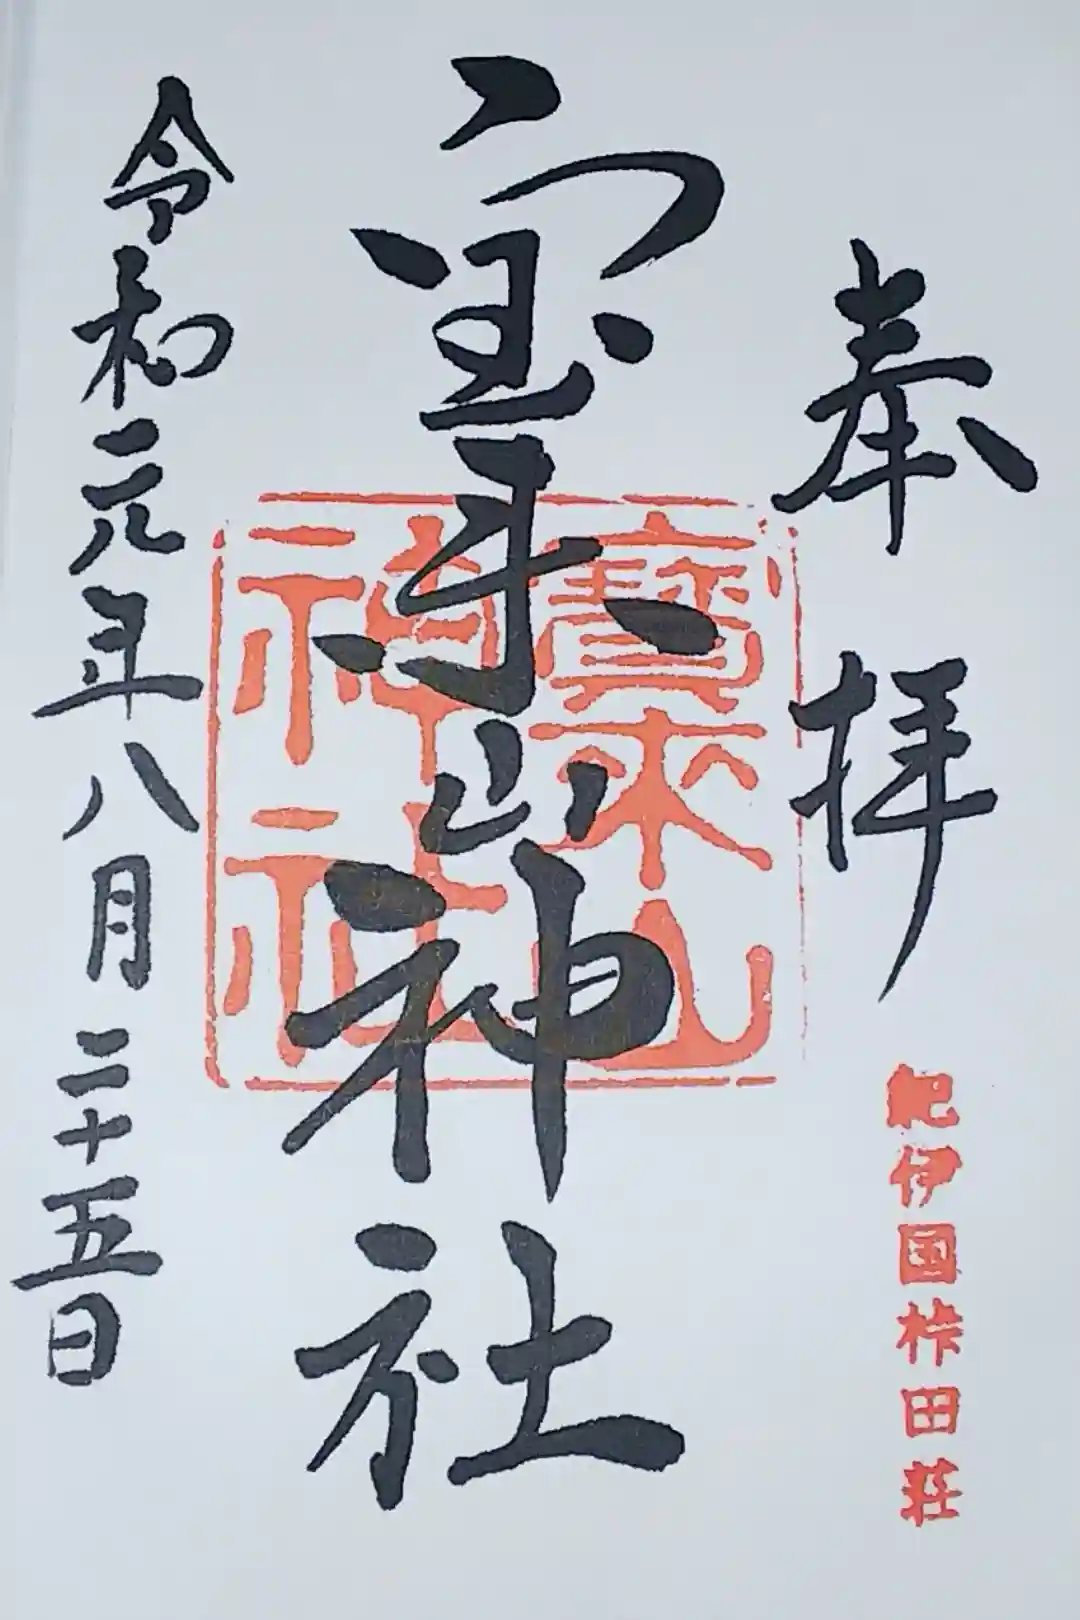 奉拝
紀伊国桛田荘
宝来山神社
寶來山神社
令和元年八月二十五日